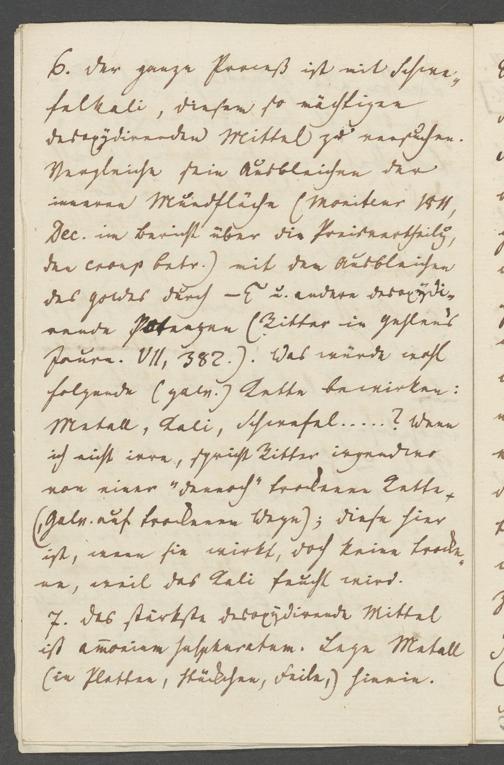 6. der ganze Proceß ist mit Schwe-
felkali, diesem so mächtigen
desoxydirenden Mittel zu versuchen.
Vergleiche sein Ausbleichen der
inneren Mundfläche (Moniteur 1811,
Dec. im Bericht über die Preisvertheilg,
den croup betr.) mit dem Ausbleichen
des goldes durch – E u. andere desoxydi-
rende Potenzen (Ritter in Gehlen's
Journ. VII, 382.). Was würde wohl
folgende (galv.) Kette bewirken:
Metall, Kali, Schwefel.....? Wenn
ich nicht irre, spricht Ritter irgendwo
von einer "dennoch" trockenen Kette
(Galv. auf trockenem Wege); diese hier
ist, wenn sie wirkt, doch keine trocke-
ne, weil das Kali feucht wird.
7. das stärkste desoxydirende Mittel
ist amonium sulphuratum. Lege Metall
(in Platten, Stückchen, Feile,) hinein.